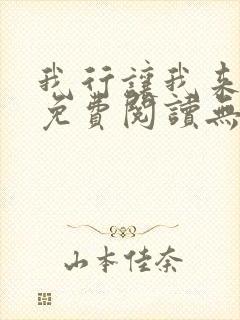 我行讓我來
免費閱讀無
山本佳奈